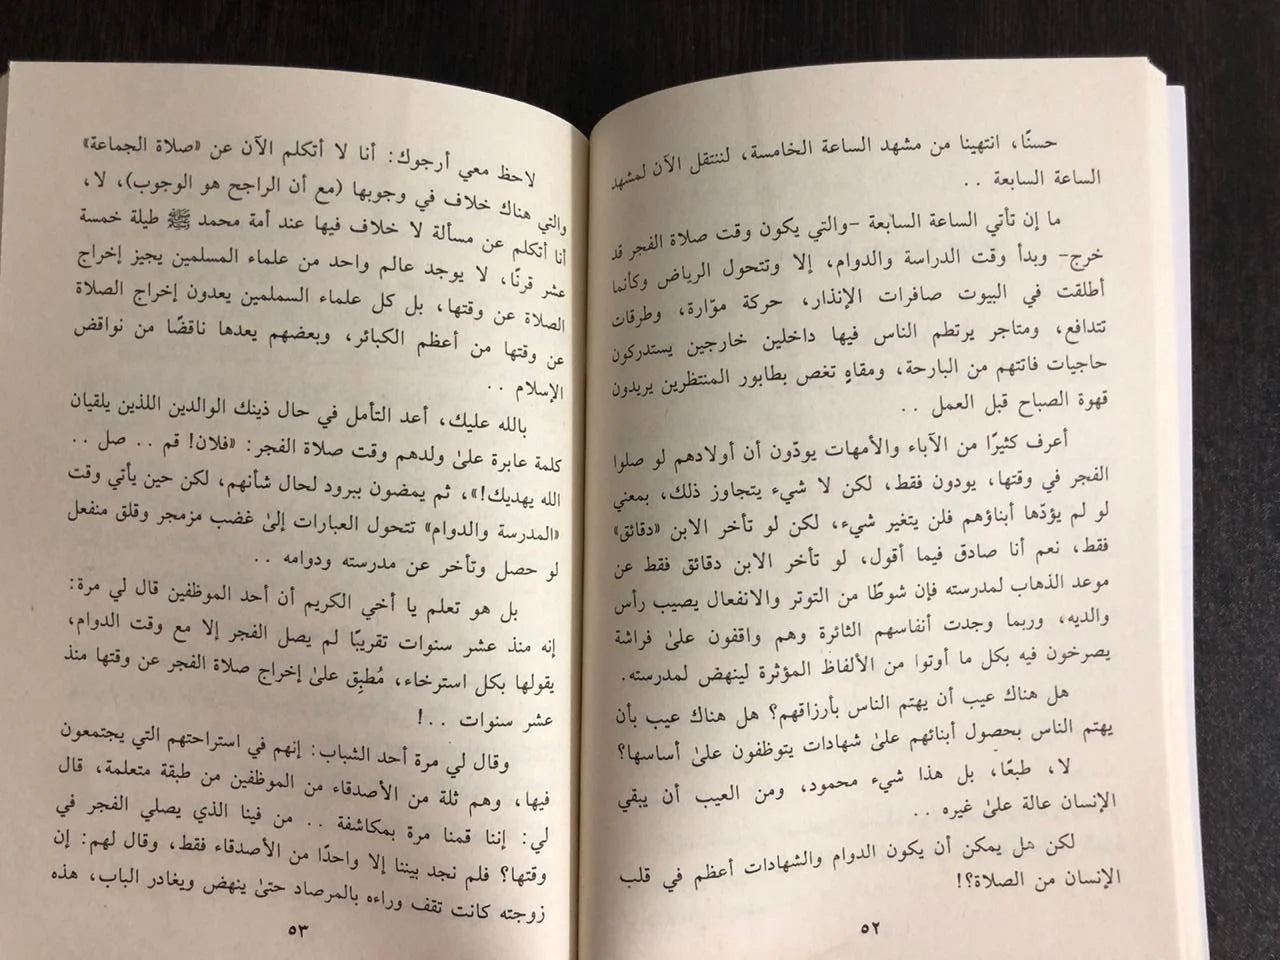 حسنًا، انتهينا من مشهد الساعة الخامسة، لننتقل الآن لمشهد
الساعة السابعة . .
ما إن تأتي الساعة السابعة -والتي يكون وقت صلاة الفجر قد
خرج- وبدأ وقت الدراسة والدوام، إلا وتتحول الرياض وكأنما
أطلقت في البيوت صافرات الإنذار، حركة موّارة، وطرقات
تتدافع، ومتاجر يرتطم الناس فيها داخلين خارجين يستدركون
حاجيات فاتتهم من البارحة، ومقاهٍ تغص بطابور المنتظرين يريدون
قهوة الصباح قبل العمل . .
أعرف كثيرًا من الآباء والأمهات يودّون أن أولادهم لو صلوا
الفجر في وقتها، يودون فقط، لكن لا شيء يتجاوز ذلك، بمعني
لو لم يؤدّها أبناؤهم فلن يتغير شيء، لكن لو تأخر الابن «دقائق»
فقط، نعم أنا صادق فيما أقول، لو تأخر الابن دقائق فقط عن
موعد الذهاب لمدرسته فإن شوطًا من التوتر والانفعال يصيب رأس
والديه، وربما وجدت أنفاسهم الثائرة وهم واقفون علىٰ فراشة
يصرخون فيه بكل ما أوتوا من الألفاظ المؤثرة لينهض لمدرسته.
هل هناك عيب أن يهتم الناس بأرزاقهم؟ هل هناك عيب بأن
يهتم الناس بحصول أبنائهم علىٰ شهادات يتوظفون علىٰ أساسها؟
لا، طبعًا، بل هذا شيء محمود، ومن العيب أن يبقي
الإنسان عالة علىٰ غيره . .
لكن هل يمكن أن يكون الدوام والشهادات أعظم في قلب
الإنسان من الصلاة؟!
٥٢
لاحظ معي أرجوك: أنا لا أتكلم الآن عن «صلاة الجماعة»
والتي هناك خلاف في وجوبها (مع أن الراجح هو الوجوب)، لا،
أنا أتكلم عن مسألة لا خلاف فيها عند أمة محمد ﷺ طيلة خمسة
عشر قرنًا، لا يوجد عالم واحد من علماء المسلمين يجيز إخراج
الصلاة عن وقتها، بل كل علماء السملمين يعدون إخراج الصلاة
عن وقتها من أعظم الكبائر، وبعضهم يعدها ناقضًا من نواقض
الإسلام . .
بالله عليك، أعد التأمل في حال ذينك الوالدين اللذين يلقيان
كلمة عابرة علىٰ ولدهم وقت صلاة الفجر: «فلان! قم . . صل . .
الله يهديك!»، ثم يمضون ببرود لحال شأنهم، لكن حين يأتي وقت
«المدرسة والدوام» تتحول العبارات إلىٰ غضب مزمجر وقلق منفعل
لو حصل وتأخر عن مدرسته ودوامه . .
بل هو تعلم يا أخي الكريم أن أحد الموظفين قال لي مرة:
إنه منذ عشر سنوات تقريبًا لم يصل الفجر إلا مع وقت الدوام،
يقولها بكل استرخاء، مُطبِق علىٰ إخراج صلاة الفجر عن وقتها منذ
عشر سنوات . .!
وقال لي مرة أحد الشباب: إنهم في استراحتهم التي يجتمعون
فيها، وهم ثلة من الأصدقاء من الموظفين من طبقة متعلمة، قال
لي: إننا قمنا مرة بمكاشفة . . من فينا الذي يصلي الفجر في
وقتها؟ فلم نجد بيننا إلا واحدًا من الأصدقاء فقط، وقال لهم: إن
زوجته كانت تقف وراءه بالمرصاد حتىٰ ينهض ويغادر الباب، هذه
٥٣